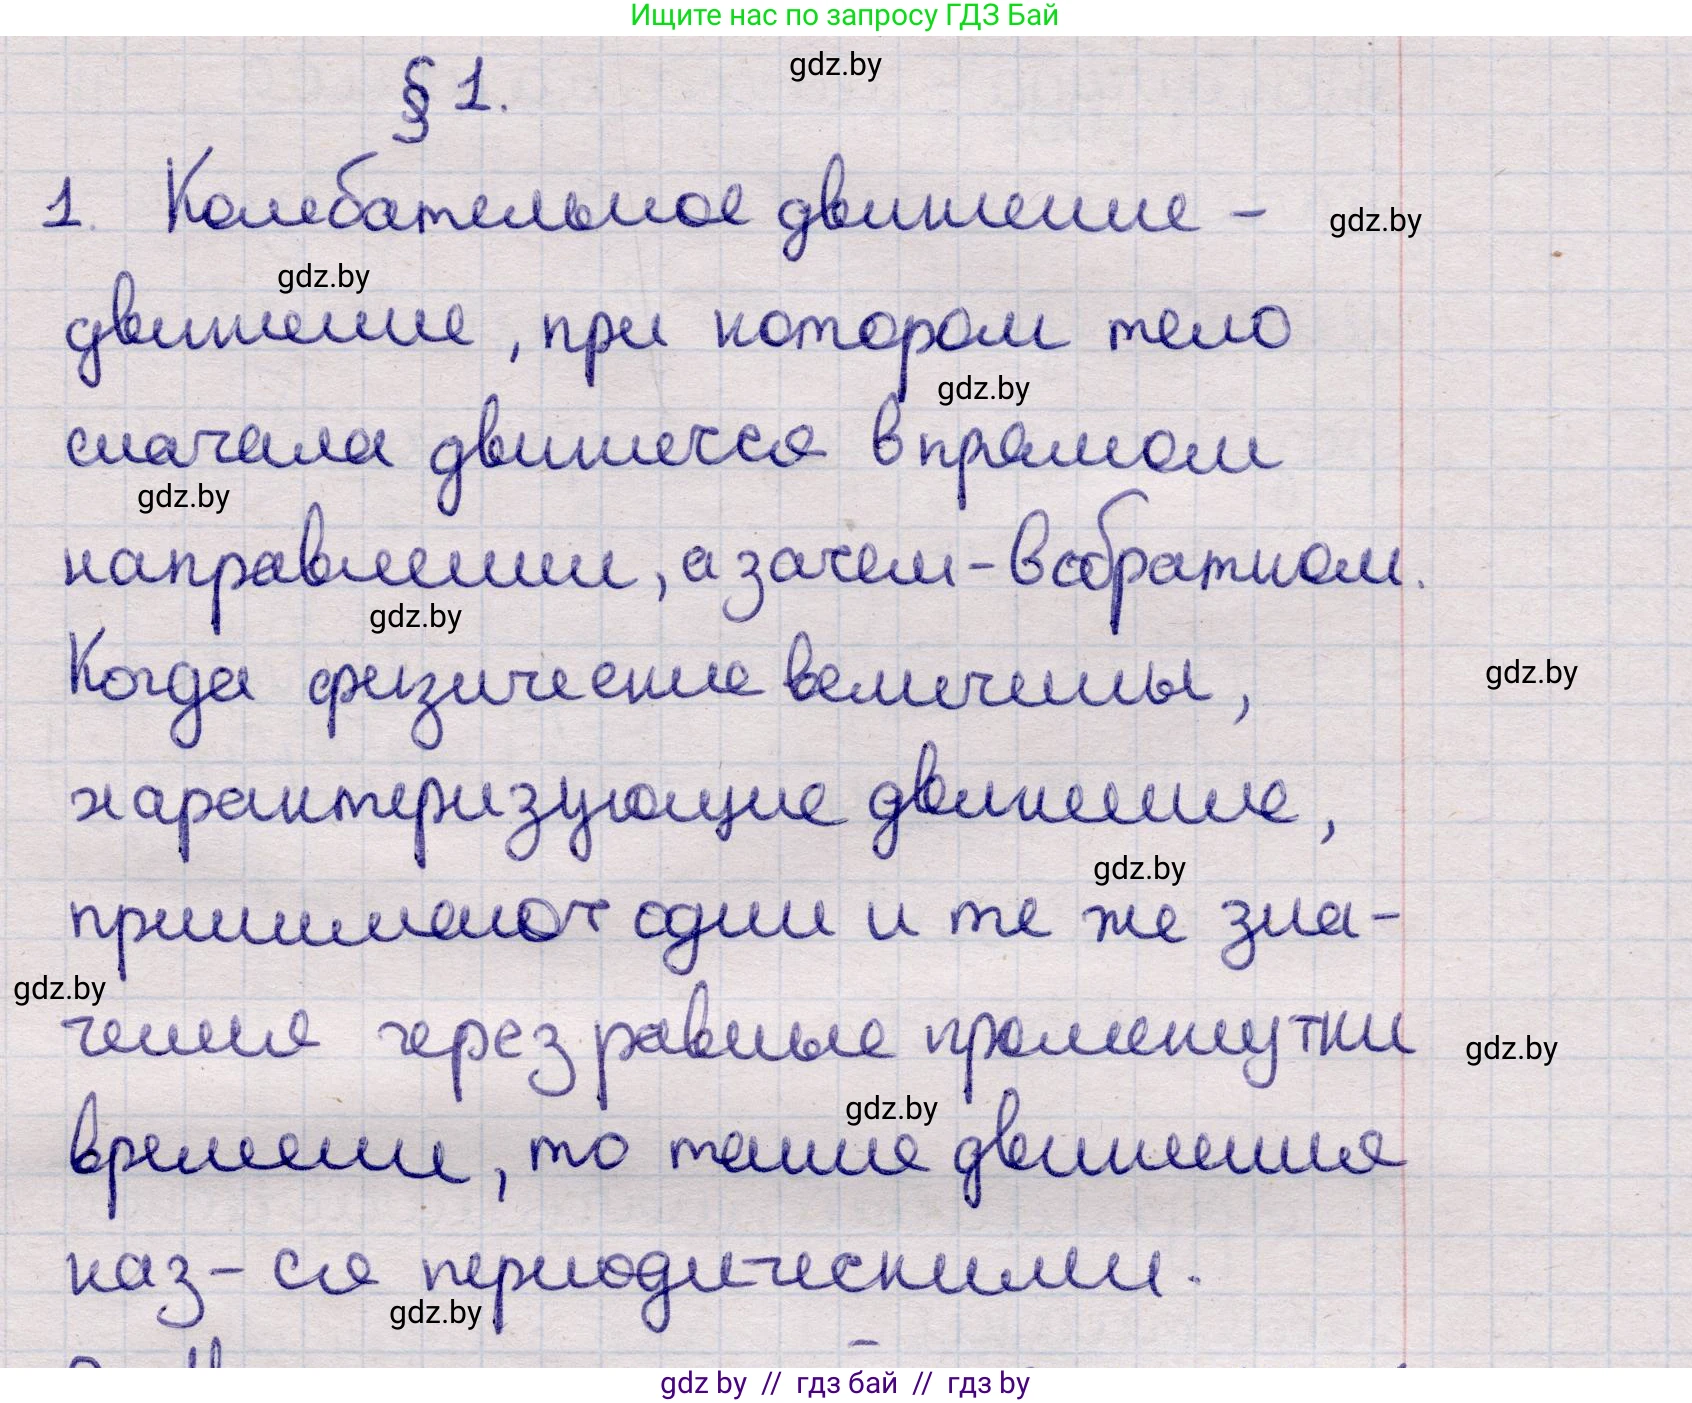 Ищите нас по запросу ГДЗ Бай
§ 1.
gdz.by
1. Колебательное движение –
gdz.by
gdz.by
движение, при котором тело
gdz.by
сначала движется в прямом
gdz.by
направлении, а затем – в обратном.
gdz.by
Когда физические величины,
gdz.by
характеризующие движение,
gdz.by
принимают одни и те же зна-
gdz.by
чения через равные промежутки
gdz.by
gdz.by
времени, то такие движения
наз-ся периодическими.
gdz.by
gdz by // гдз бай // гдз by